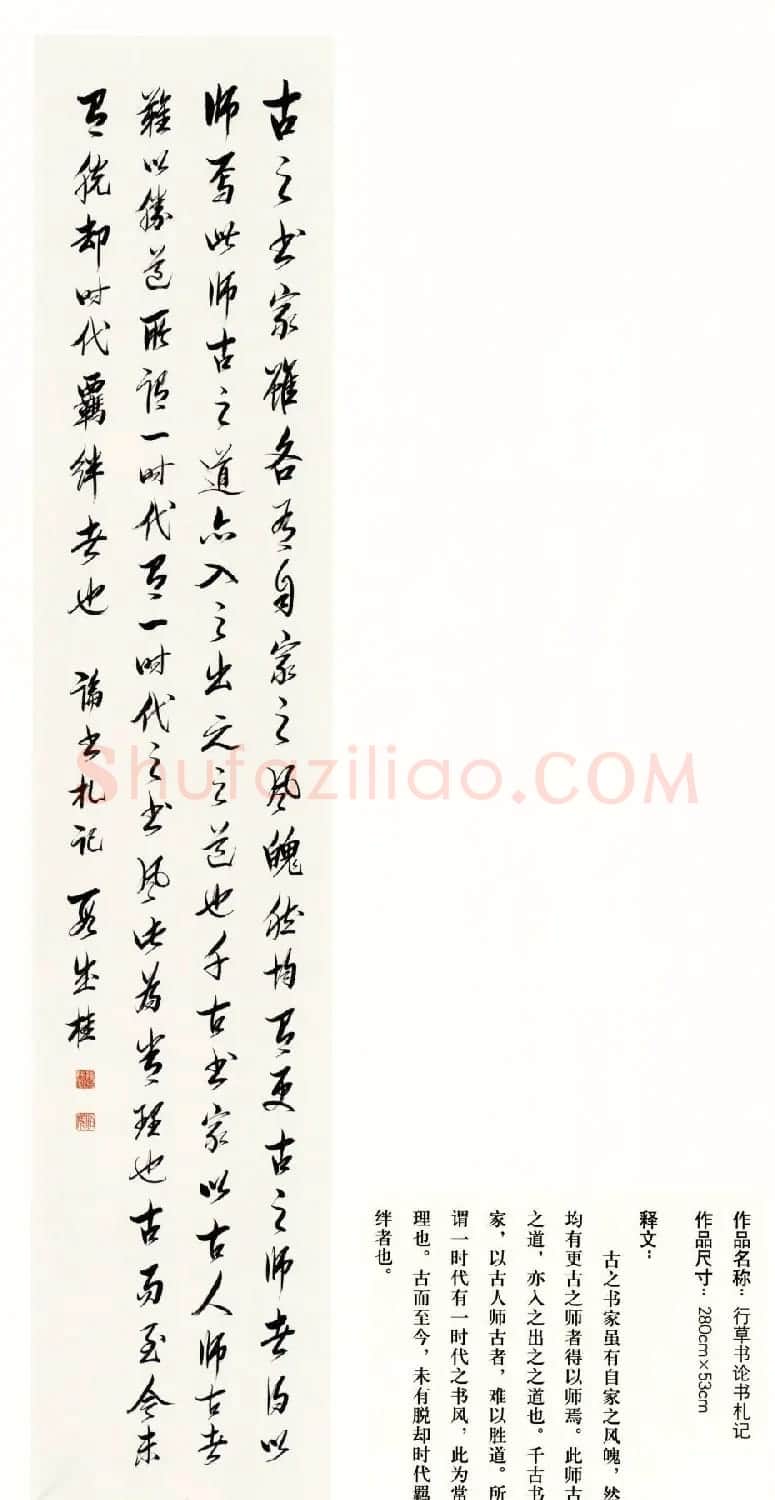 古之书家虽各有自家之风魄然均有更古之师者得以
师焉此师古之道亦入之出之之道也千古书家以古人师古者
难以胜道所谓一时代有一时代之书风此为常理也古而至今未
有脱却时代羁绊者也 论书札记
作品名称：行草书论书札记
作品尺寸：280cm×53cm
释文：
古之书家虽有自家之风魄，然
均有更古之师者得以师焉。此师古
之道，亦入之出之之道也。千古书
家，以古人师古者，难以胜道。所
谓一时代有一时代之书风，此为常
理也。古而至今，未有脱却时代羁
绊者也。
Shufaziliao.COM